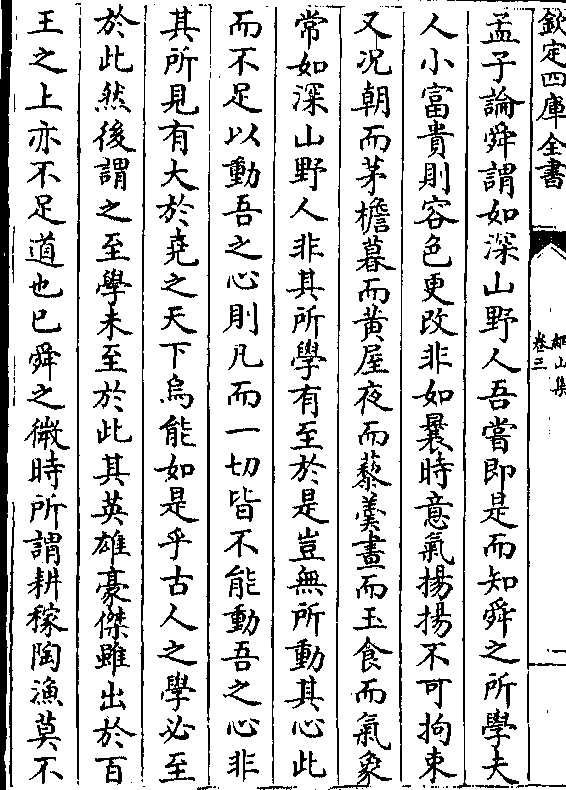 欽定四庫全書
網山集
卷三
一
孟子論舜謂如深山野人吾嘗即是而知舜之所學夫
人小富貴則容色更改非如曩時意氣揚揚不可拘束
又況朝而茅檐暮而黄屋夜而藜羮晝而玉食而氣象
常如深山野人非其所學有至於是豈無所動其心此
而不足以動吾之心則凡而一切皆不能動吾之心非
其所見有大於堯之天下烏能如是乎古人之學必至
於此然後謂之至學未至於此其英雄豪傑雖出於百
王之上亦不足道也已舜之微時所謂耕稼陶漁莫不